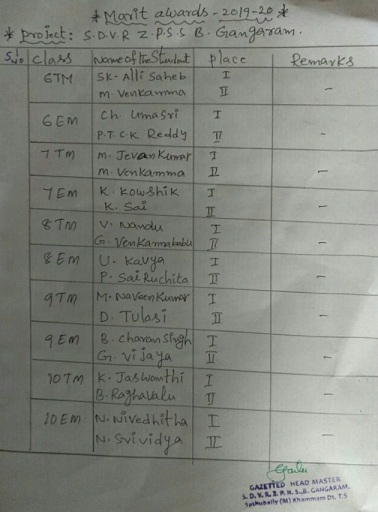 * Marit awards - 2019-20 *
* project: S.D.V.R Z.P.S.S B. Gangaram.
Sl NO Class Name of the Student place Remarks
6TM SK. Alli Saheb I
M. Venkamma II -
6 EM Ch. Umasri I
P.T.C.K Reddy II -
7 TM M. Jevan Kumar I
M. Venkamma II -
7 EM K. Kowshik I
K. Sai II -
8TM V. Nandu I
G. Venkannababu II -
8 EM U. Kavya I
P. Sai Ruchita II -
9TM M. Naveen Kumar I
D. Tulasi II -
9 EM B. Charan Singh I
G. Vijaya II -
10TM K. Jaswanthi I
B. Raghavalu II -
10 EM N. Nivedhitha I
N. Srividya II -
GAZETTED HEAD MASTER
S. D. V. R. Z. P. H. S., B. GANGARAM.
Sathupally (M) Khammam Dt. T.S